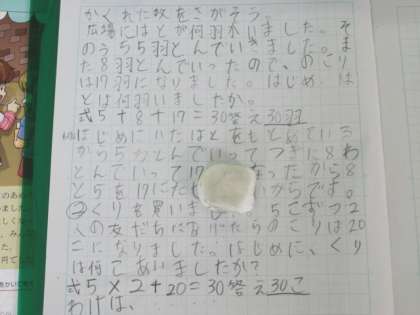 かくれた数をさがそう。
広場にはとが何羽かいました。そ
のうち5羽とんでいきました。ま
た8羽とんでいったので、のこり
は17羽になりました。はじめ、は
とは何羽いましたか。
式5+8+17=30答え30羽
はじめにいたはとをもとめている
から5わとんでいってつぎに8わ
とんでいって17 なったから8
と5を17にた いいからです。
②くりを買いま 5こずつ2
人の友だちに げたらのこりは20
こになりました。はじめに、くり
は何こありましたか?
式5×2+20=30答え30こ
わけは、